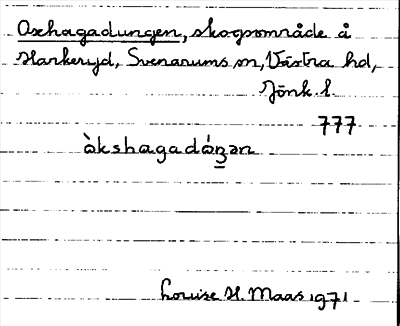 Oxhagadungen, skogsområde å
Harkeryd, Svenarums sn, Västra hd,
Jönk. l.
777
àkshagadáŋ̲ən
Louise H. Maas 1971